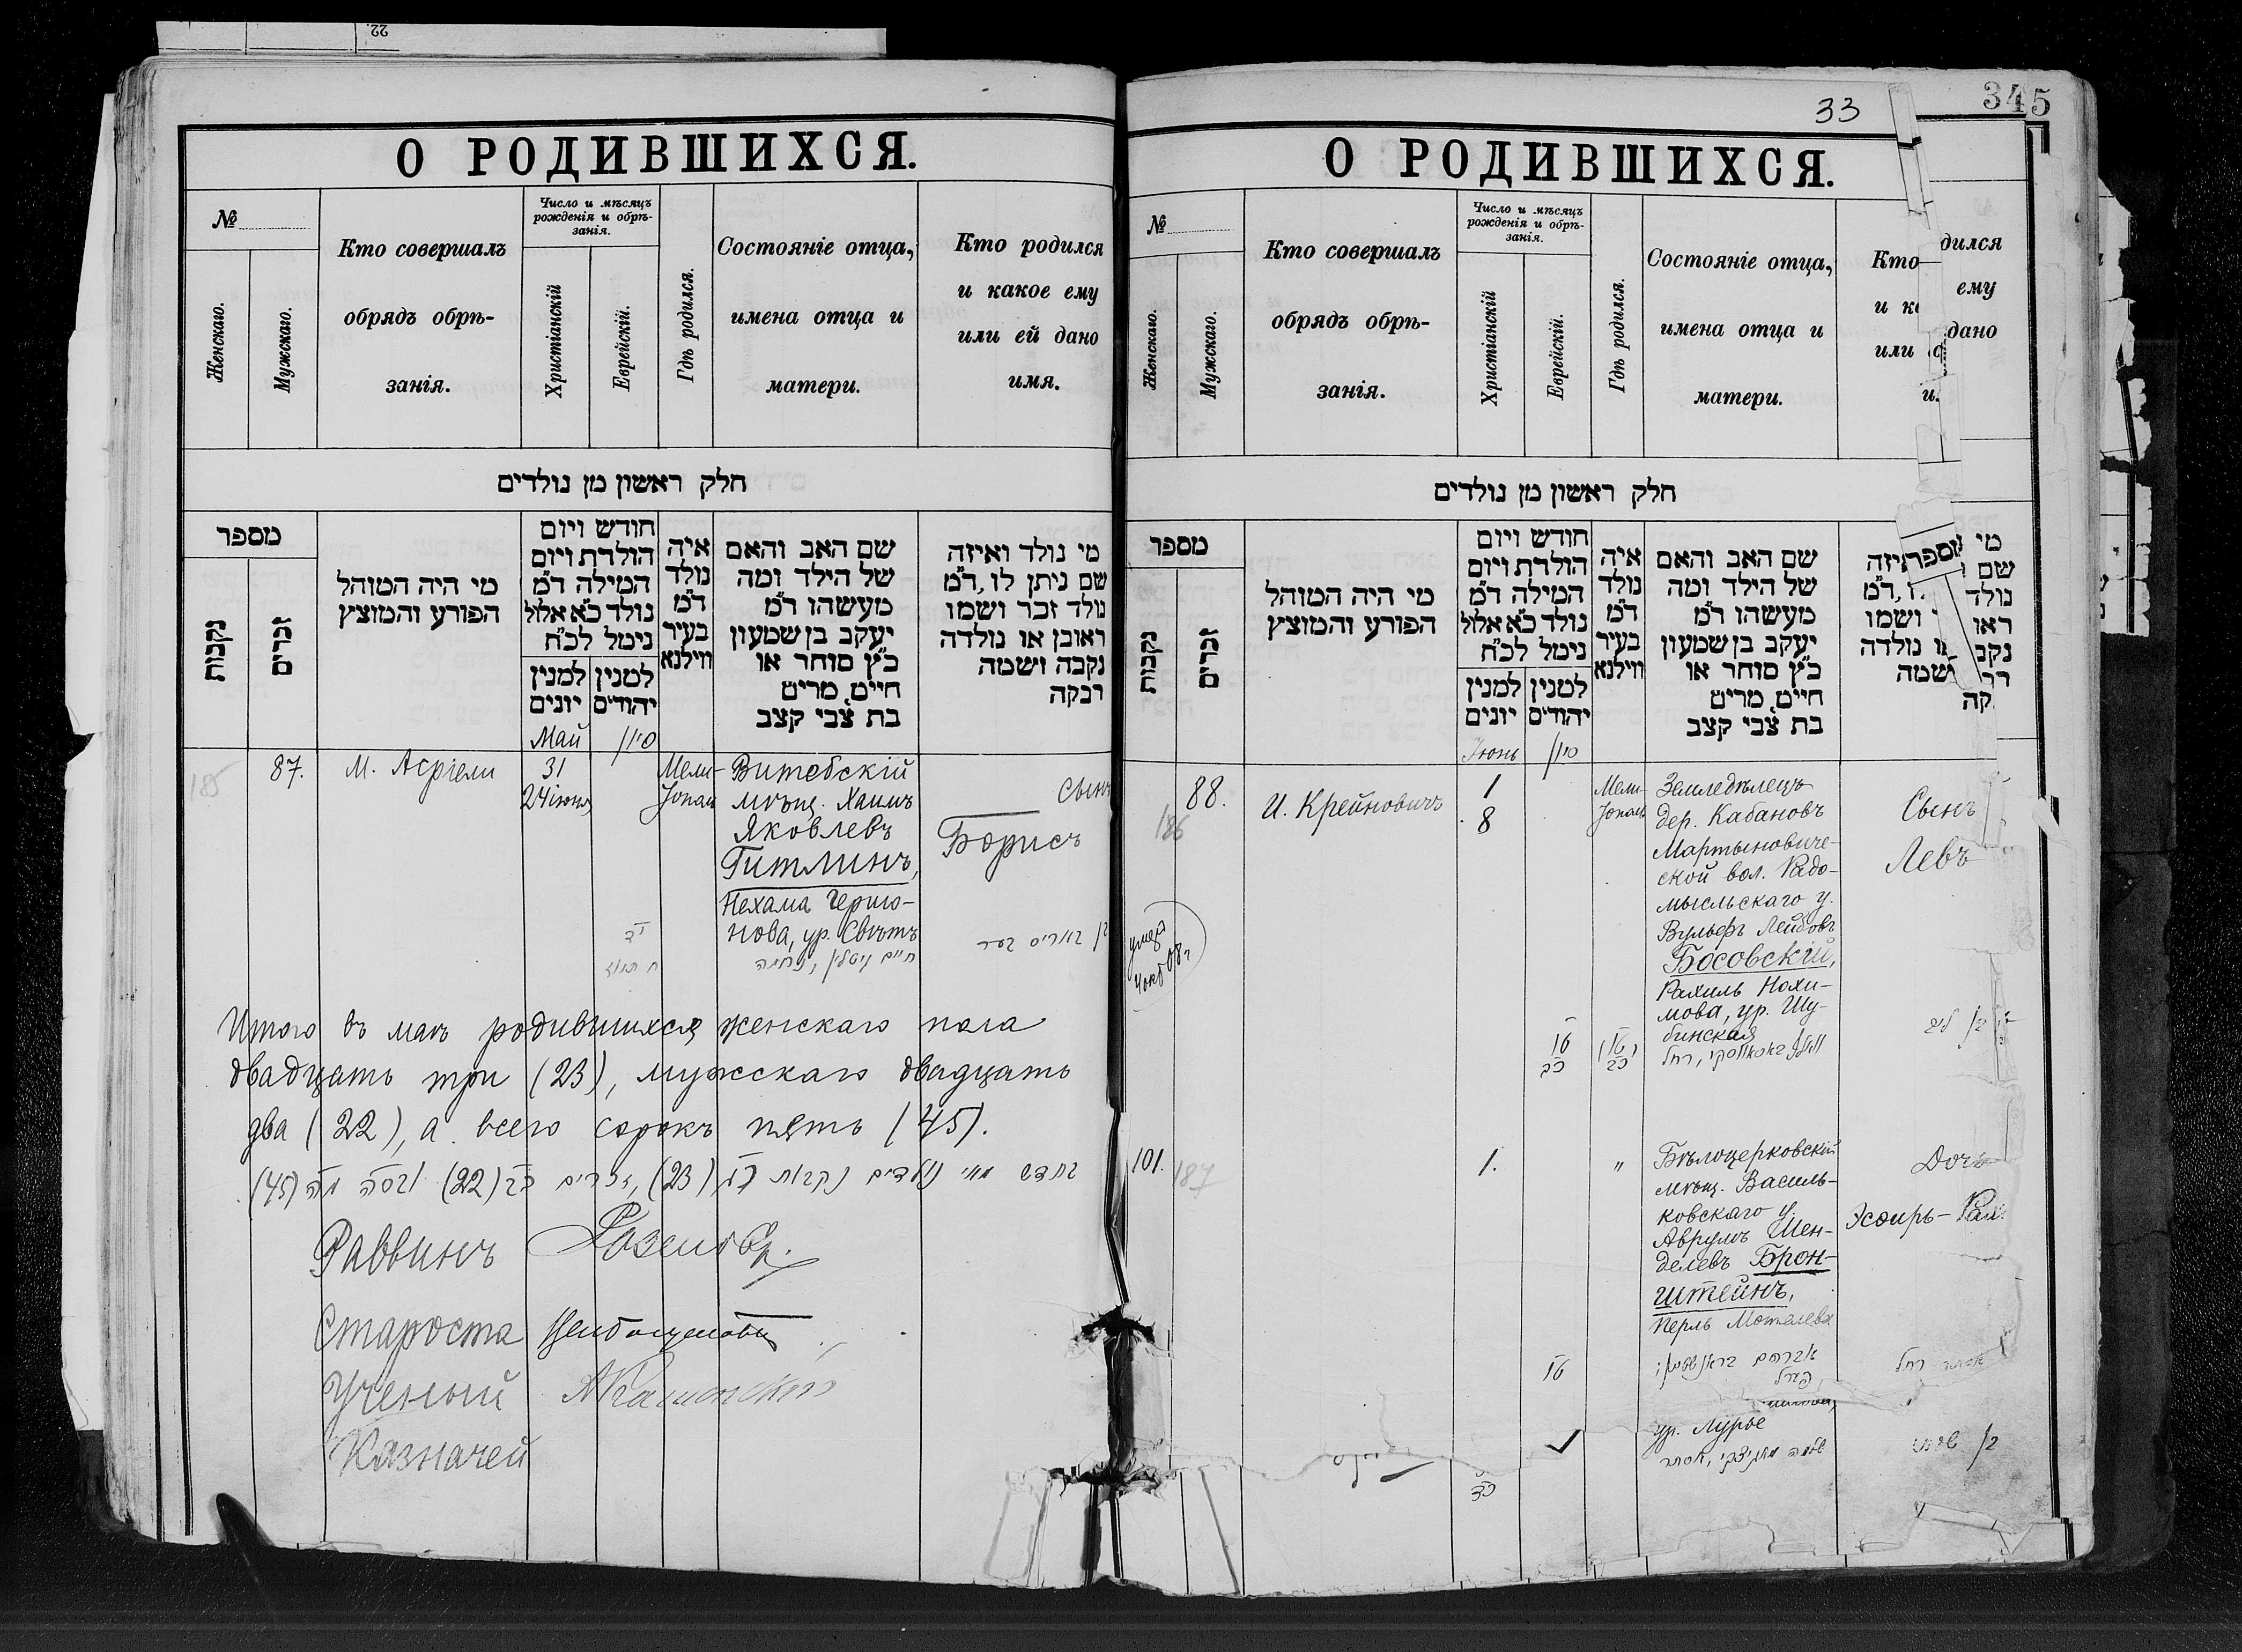 22.
О РОДИВШИХСЯ.
№
Женскаго.
Мужскаго.
Кто совершалъ
обрядъ обрѣ-
занія.
Число и мѣсяцъ
рожденія и обрѣ-
занія.
Христіанскій
Еврейскій.
Гдѣ родился.
Состояніе отца,
имена отца и
матери.
Кто родился
и какое ему
или ей дано
имя.
חלק ראשון מן נולדים
מספר
נקבות
זכרים
מי היה המוהל
הפורע והמוצץ
חודש ויום
הולדת ויום
המילה ד״מ
נולד כ״א אלול
נימל לכ״ח
למנין יונים
למנין יהודים
איה
נולד
ד״מ
בעיר
ווילנא
שם האב והאם
של הילד ומה
מעשהו ד״מ
יעקב בן שמעון
כ״ץ סוחר או
חייט, מרים
בת צבי קצב
מי נולד ואיזה
שם ניתן לו, ד״מ
נולד זכר ושמו
ראובן או נולדה
נקבה ושמה
רבקה
Май
סיון
185
87.
М. Асріели
31
24 іюня
Мели-
тополь
Витебскій
мѣщ. Хаимъ
Яковлевъ
Гитлинъ,
Нехама Гершо-
нова, ур. Свѣтъ
חיים גיטלין, נחמה
Сынъ
Борисъ
Итого въ маѣ родившихся женскаго пола
двадцать три (23), мужскаго двадцать
два (22), а всего сорокъ пять (45).
(23) (22) (45)
Раввинъ
Староста
Ученый
Казначей
33
345
О РОДИВШИХСЯ.
№
Женскаго.
Мужскаго.
Кто совершалъ
обрядъ обрѣ-
занія.
Число и мѣсяцъ
рожденія и обрѣ-
занія.
Христіанскій
Еврейскій.
Гдѣ родился.
Состояніе отца,
имена отца и
матери.
Кто дился
и к ему
или дано
и.
חלק ראשון מן נולדים
מספר
נקבות
זכרים
מי היה המוהל
הפורע והמוצץ
חודש ויום
הולדת ויום
המילה ד״מ
נולד כ״א אלול
נימל לכ״ח
למנין יונים
למנין יהודים
איה
נולד
ד״מ
בעיר
ווילנא
שם האב והאם
של הילד ומה
מעשהו ד״מ
יעקב בן שמעון
כ״ץ סוחר או
חייט, מרים
בת צבי קצב
Іюнь
סיון
88.
186
И. Крейновичъ
1
8
Мели-
тополь
Земледѣлецъ
дер. Кабановъ
Мартыновиче-
ской вол. Радо-
мысльскаго у.
Вульфъ Лейбовъ
Босовскій,
Рахиль Нохи-
мова, ур. Шу-
бинская
Сынъ
Левъ
101.
187
1.
"
Бѣлоцерковскій
мѣщ. Василь-
ковскаго у.
Аврумъ Шен-
делевъ Брон-
штейнъ,
Перль Моталева
Дочь
Эсѳирь-
ур. Лурье